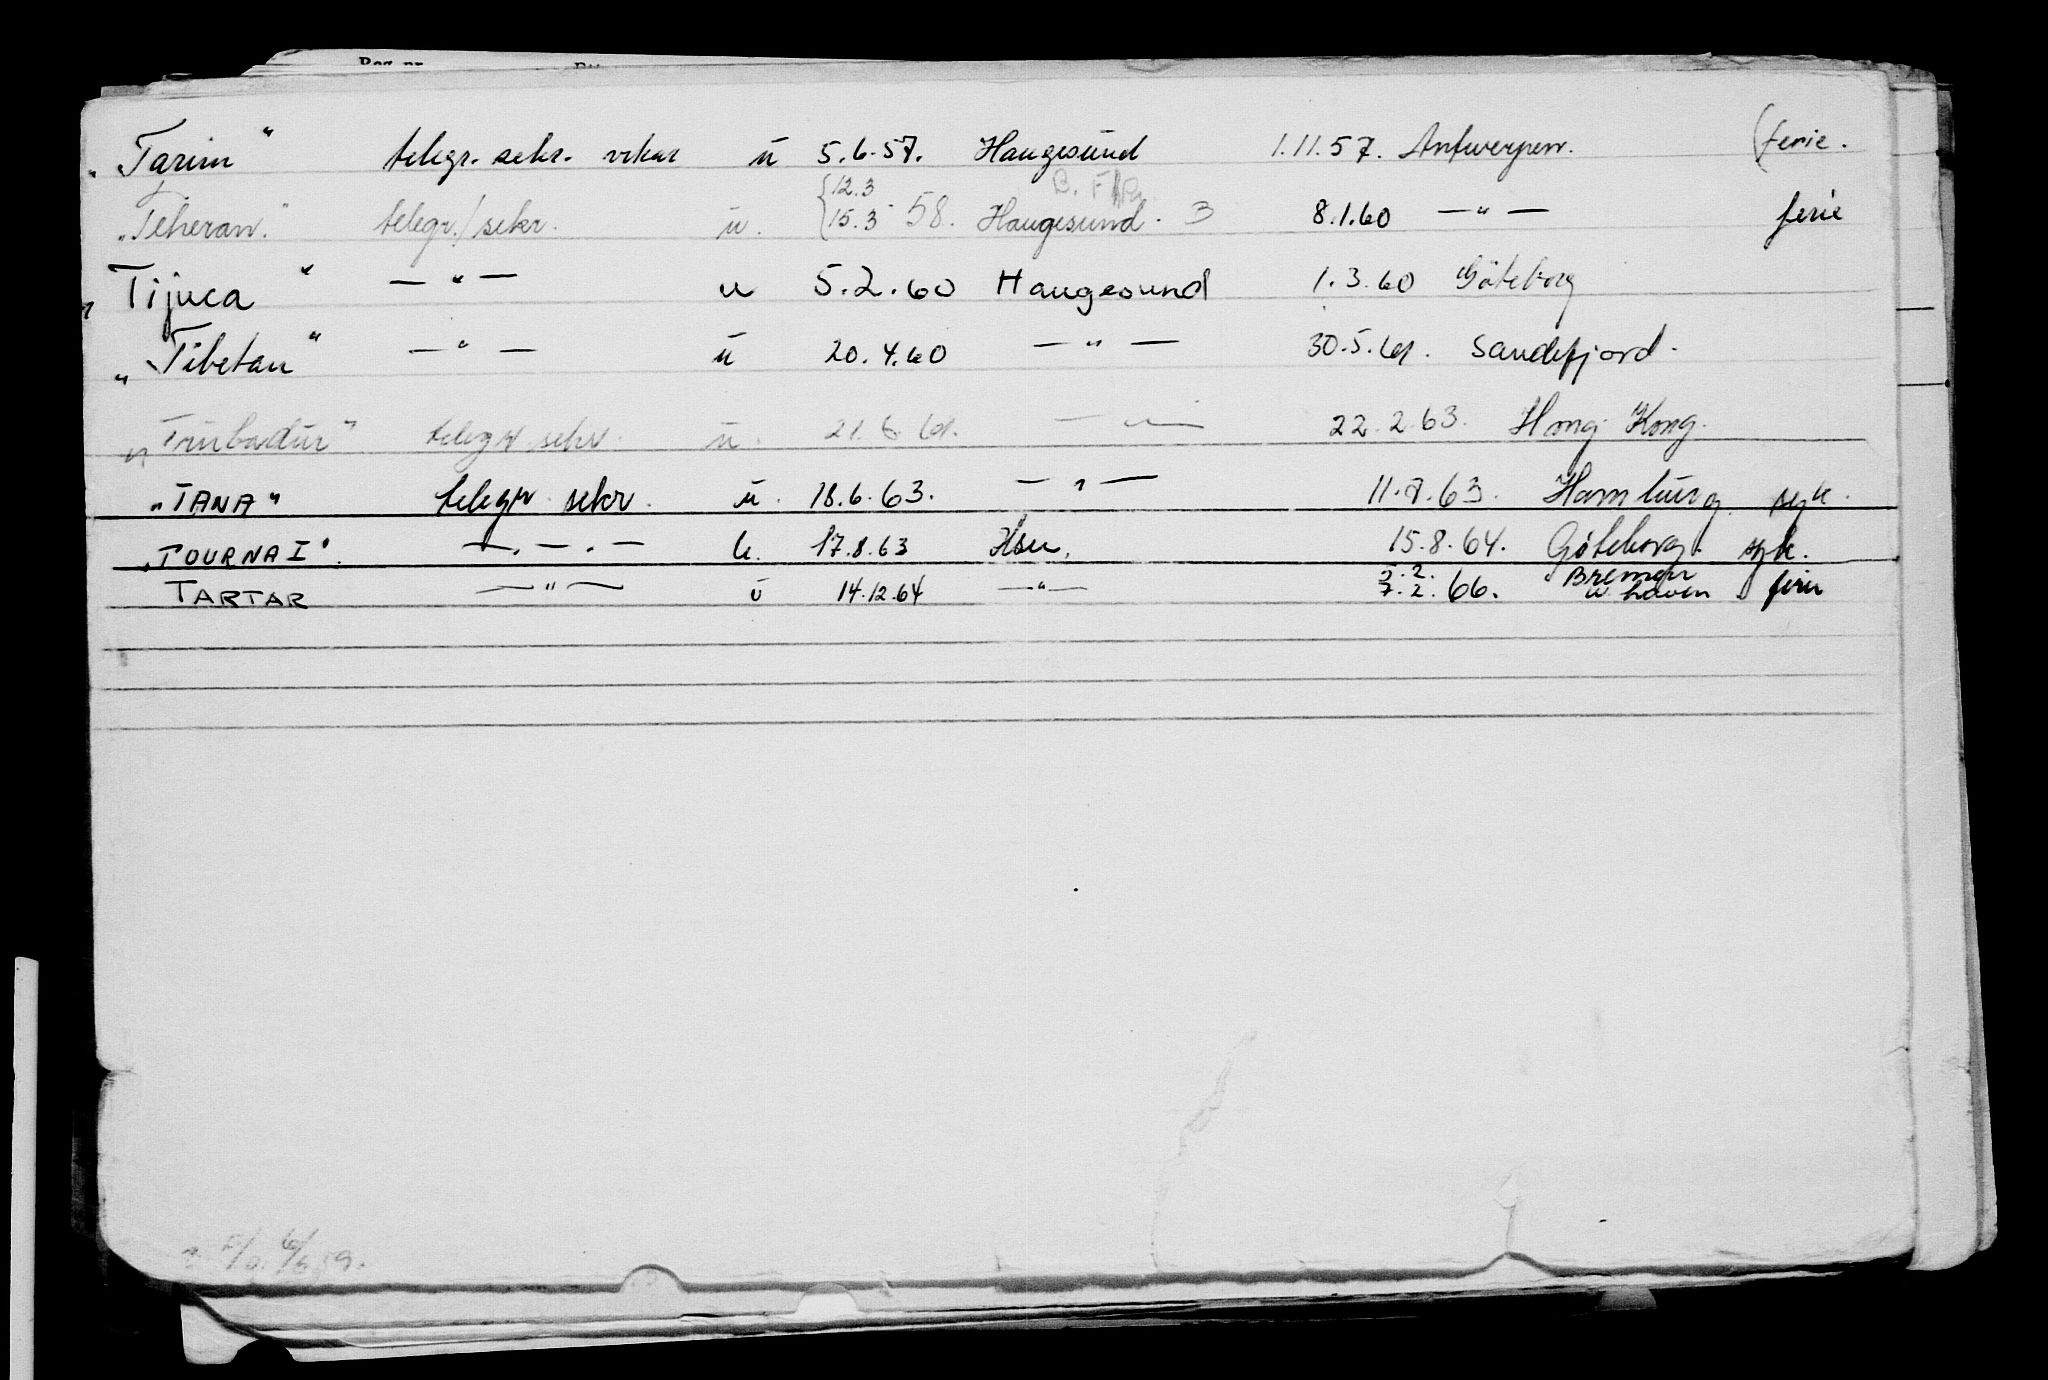 „Tarim" telegr. sekr. vikar u 5.6.57. Haugesund 1.11.57. Antwerpen. (ferie.
{12.3 B.
„Teheran." telegr./sekr. u. 15.3 58. Haugesund. 3 8.1.60 — " — ferie
„Tijuca" — " — u 5.2.60 Haugesund 1.3.60 Göteborg
„Tibetan" — " — u 20.4.60 — " — 30.5.61. Sandefjord.
„Trubadur" telegr sekr. u. 21.6.61. — " — 22.2.63. Hong Kong.
„TANA" telegr. sekr. u. 18.6.63. — " — 11.7.63. Hamburg syk.
„TOURNAI". — . — . — u. 17.8.63 Hsu, 15.8.64. Göteborg. syk.
TARTAR — " — u 14.12.64 — " — 3.2. 7.2. 66. Bremen w haven ferie